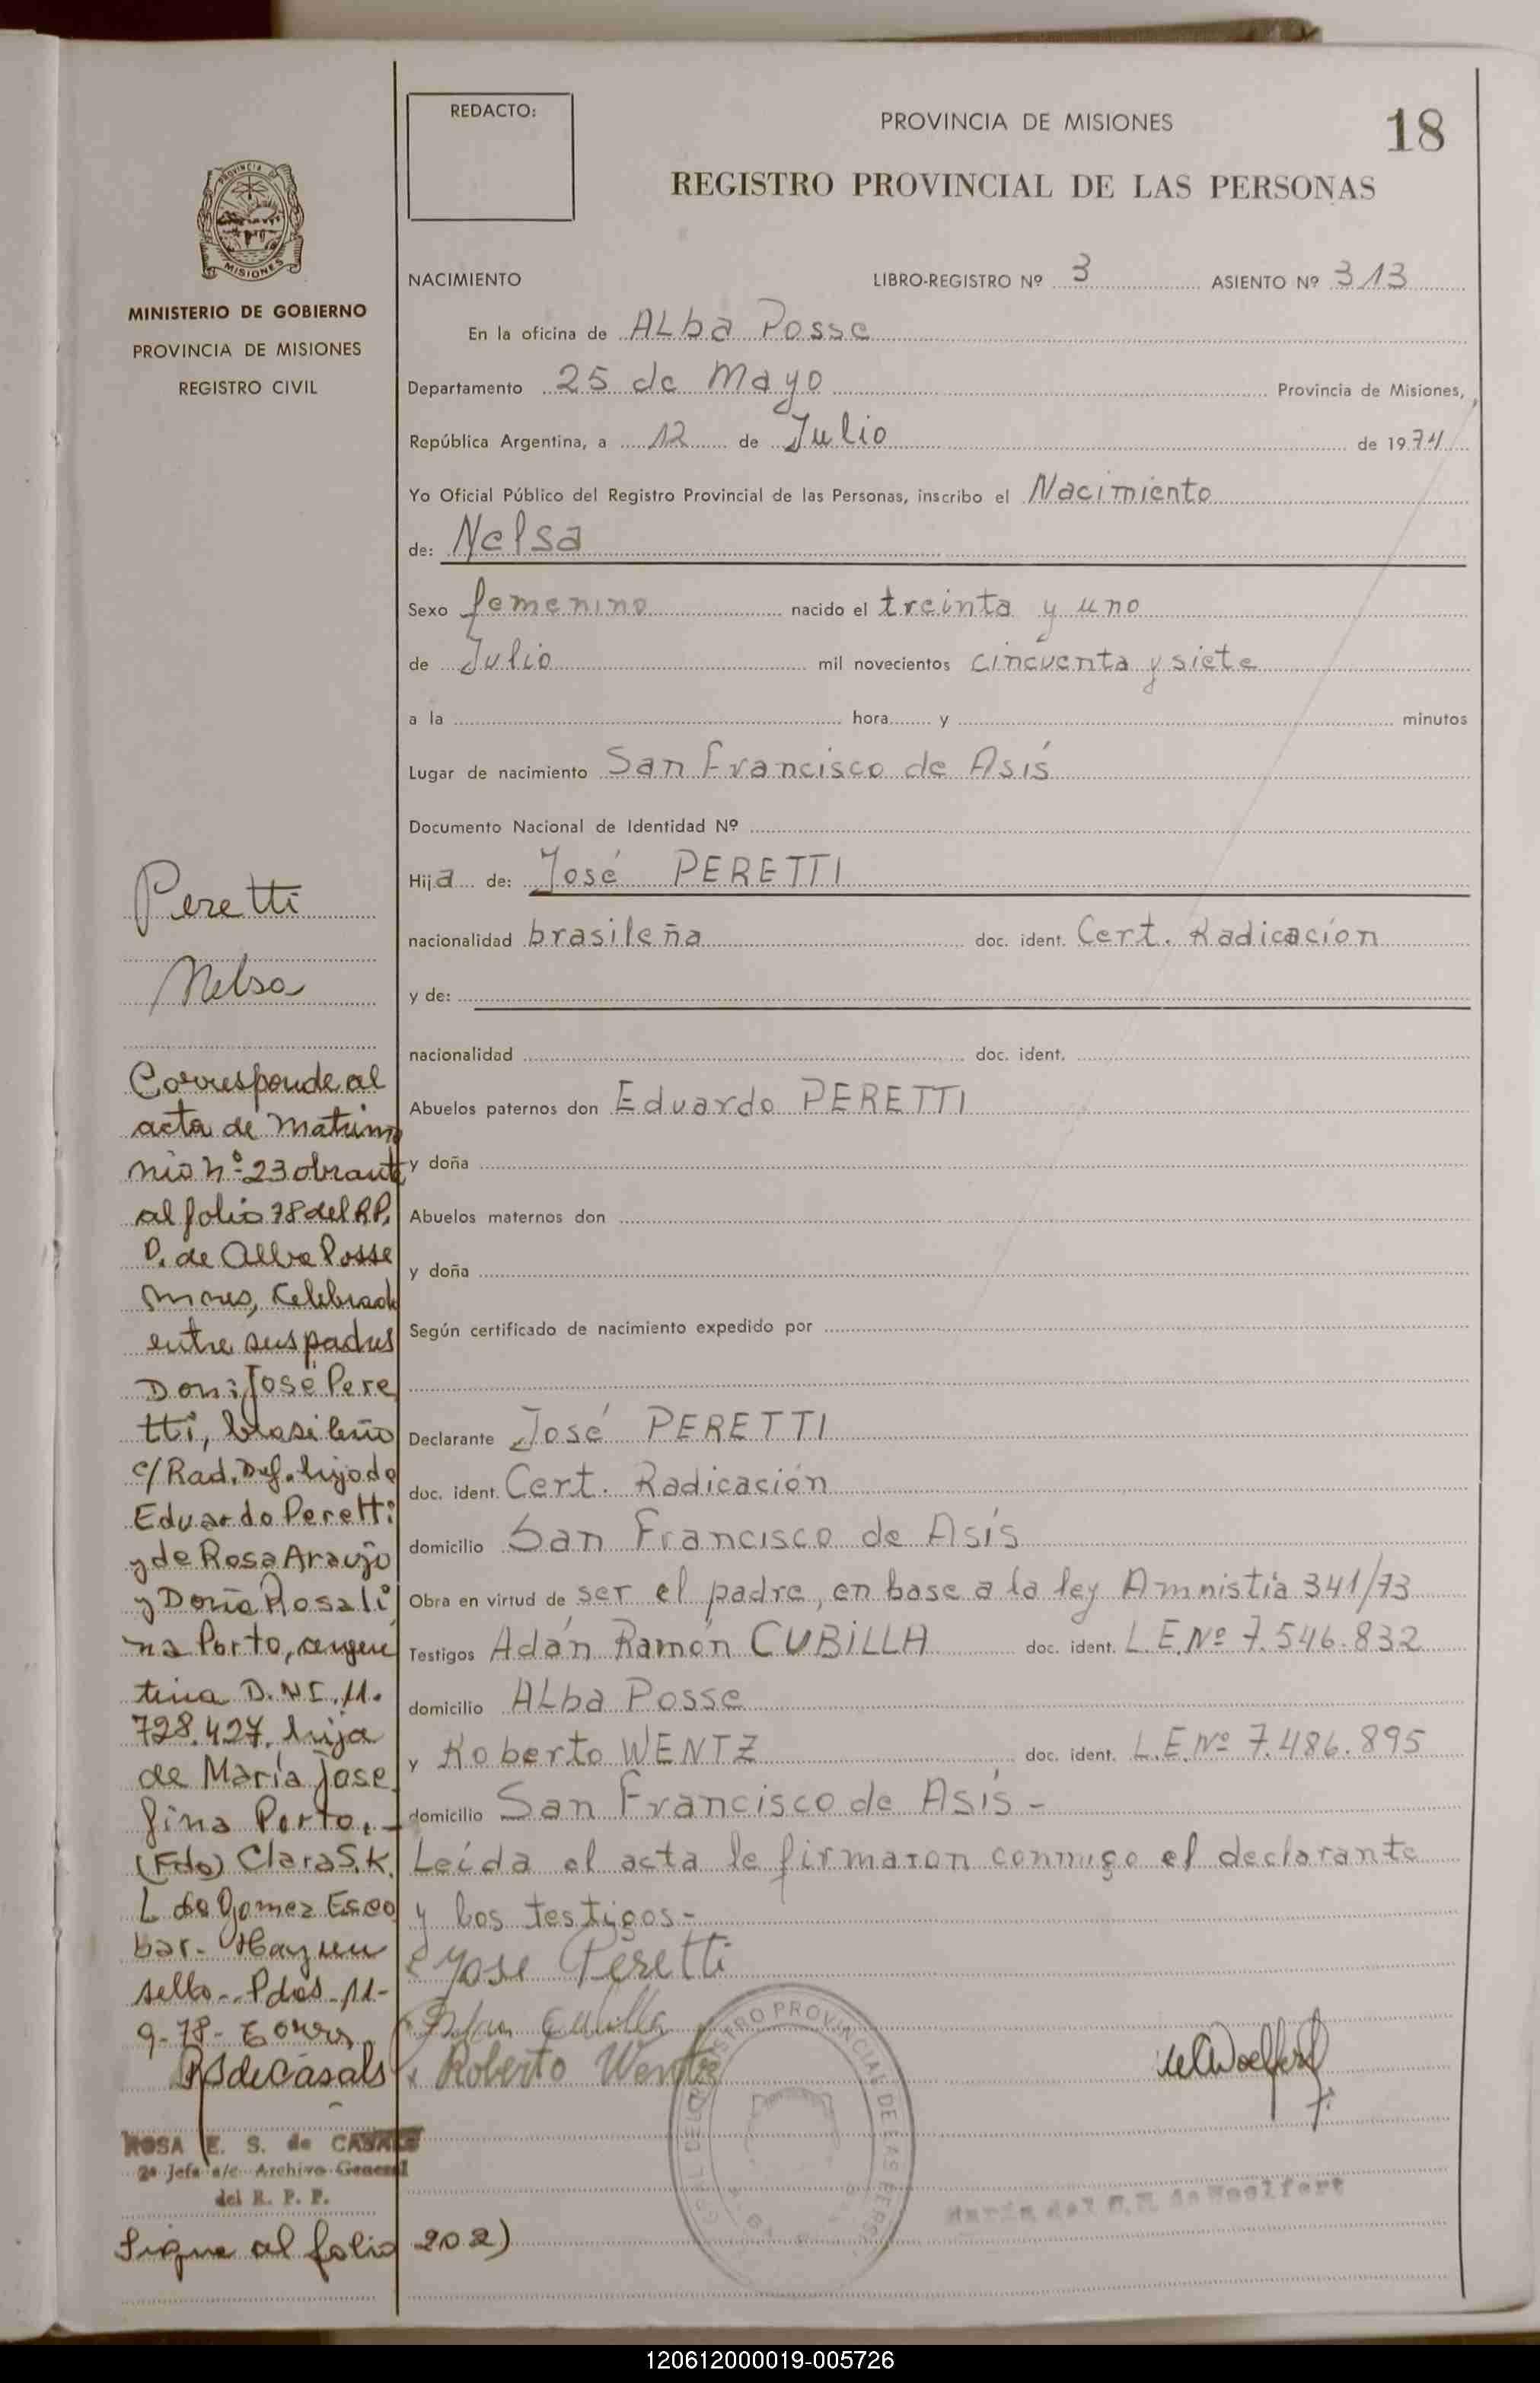 REDACTO:
PROVINCIA DE MISIONES
18
REGISTRO PROVINCIAL DE LAS PERSONAS
PROVINCIA DE
MISIONES
MINISTERIO DE GOBIERNO
PROVINCIA DE MISIONES
REGISTRO CIVIL
NACIMIENTO LIBRO-REGISTRO Nº 3 ASIENTO Nº 313
En la oficina de Alba Posse
Departamento 25 de Mayo Provincia de Misiones,
República Argentina, a 12 de Julio de 1974
Yo Oficial Público del Registro Provincial de las Personas, inscribo el Nacimiento
de: Nelsa
Sexo femenino nacido el treinta y uno
de Julio mil novecientos cincuenta y siete
a la hora y minutos
Lugar de nacimiento San Francisco de Asís
Documento Nacional de Identidad Nº
Hija de: José PERETTI
nacionalidad brasileña doc. ident. Cert. Radicación
y de:
nacionalidad doc. ident.
Abuelos paternos don Eduardo PERETTI
y doña
Abuelos maternos don
y doña
Según certificado de nacimiento expedido por
Declarante José PERETTI
doc. ident. Cert. Radicación
domicilio San Francisco de Asís
Obra en virtud de ser el padre, en base a la ley Amnistía 341/73
Testigos Adán Ramón CUBILLA doc. ident. L.E.Nº 7.546.832
domicilio Alba Posse
y Roberto WENTZ doc. ident. L.E.Nº 7.486.895
domicilio San Francisco de Asís -
Leída el acta le firmaron conmigo el declarante
y los testigos -
Jose Peretti
Roberto
Peretti
Nelsa
Corresponde al
acta de Matrimo
nio nº 23 obrante
al folio 78 del R.P.
P. de Alba Posse
Mnes, Celebrado
entre sus padres
Don: José Pere
tti, brasileño
c/Rad. Def. hijo de
Eduardo Peretti
y de Rosa Araujo
y Doña Rosali
na Porto, argen
tina D.N.I. 11.
728.427. hija
de María Jose
fina Porto. -
(Fdo) Clara S.K.
L de Gomez Esco
bar - Hay un
sello - Pdas - 11-
9-78-
RSdeCasals
ROSA E. S. de CASALS
2ª Jefa a/c Archivo General
del R. P. P.
Sigue al folio 202)
REGISTRO PROVINCIAL DE LAS PERSONAS
María del C.R. de Woelfert
120612000019-005726